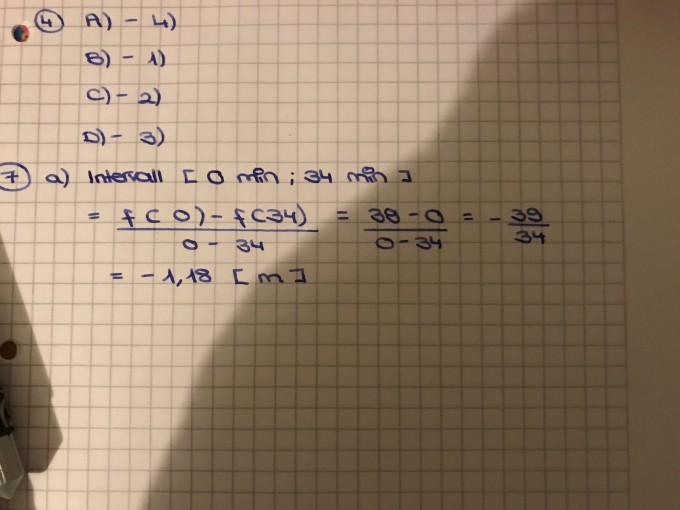 4 A) - 4)
B) - 1)
C) - 2)
D) - 3)
7 a) Intervall [ 0 min ; 34 min ]
= f(0) - f(34) / 0 - 34 = 38 - 0 / 0 - 34 = - 39 / 34
= - 1,18 [ m ]